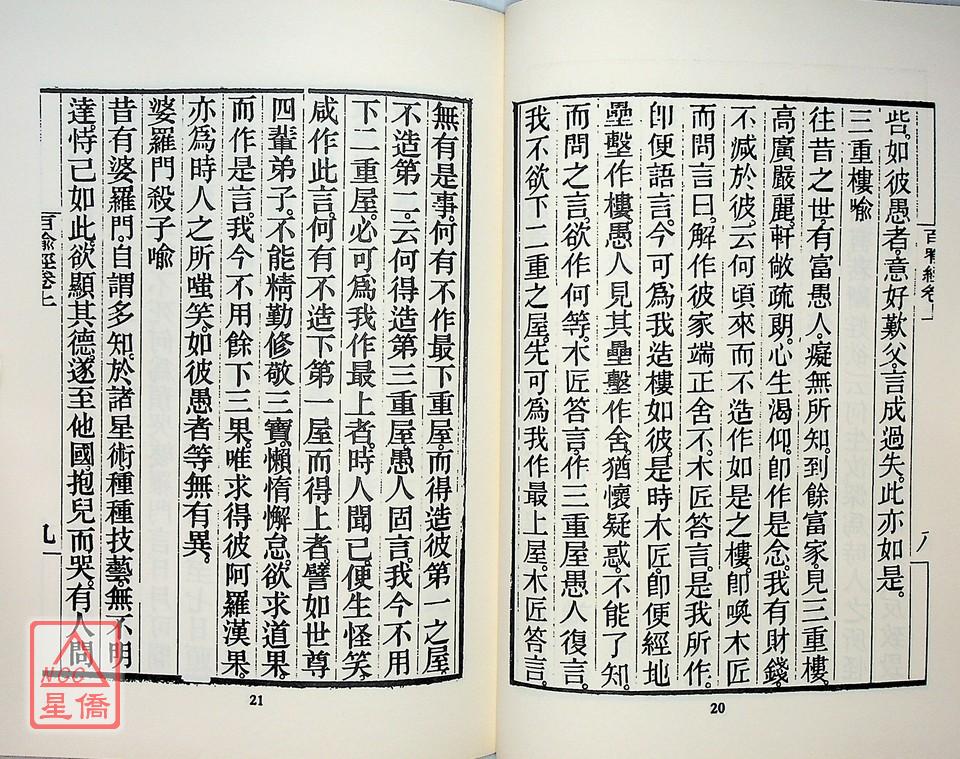 呰。如彼愚者。意好歎父。言成過失。此亦如是。
三重樓喻
往昔之世。有富愚人。癡無所知。到餘富家。見三重樓。
高廣嚴麗。軒敞疏朗。心生渴仰。卽作是念。我有財錢。
不減於彼。云何頃來而不造作如是之樓。卽喚木匠
而問言曰。解作彼家端正舍不。木匠答言。是我所作。
卽便語言。今可爲我造樓如彼。是時木匠。卽便經地
壘墼作樓。愚人見其壘墼作舍。猶懷疑惑。不能了知。
而問之言。欲作何等。木匠答言。作三重屋。愚人復言。
我不欲下二重之屋。先可爲我作最上屋。木匠答言。
20
無有是事。何有不作最下重屋。而得造彼第一之屋。
不造第二。云何得造第三重屋。愚人固言。我今不用
下二重屋。必可爲我作最上者。時人聞已。便生怪笑。
咸作此言。何有不造下第一屋而得上者。譬如世尊
四輩弟子。不能精勤修敬三寶。懶惰懈怠。欲求道果。
而作是言。我今不用餘下三果。唯求得彼阿羅漢果。
亦爲時人之所嗤笑。如彼愚者等無有異。
婆羅門殺子喻
昔有婆羅門。自謂多知。於諸星術。種種技藝。無不明
達。恃己如此。欲顯其德。遂至他國。抱兒而哭。有人問
百喻經卷上
九
21
NCC
星僑